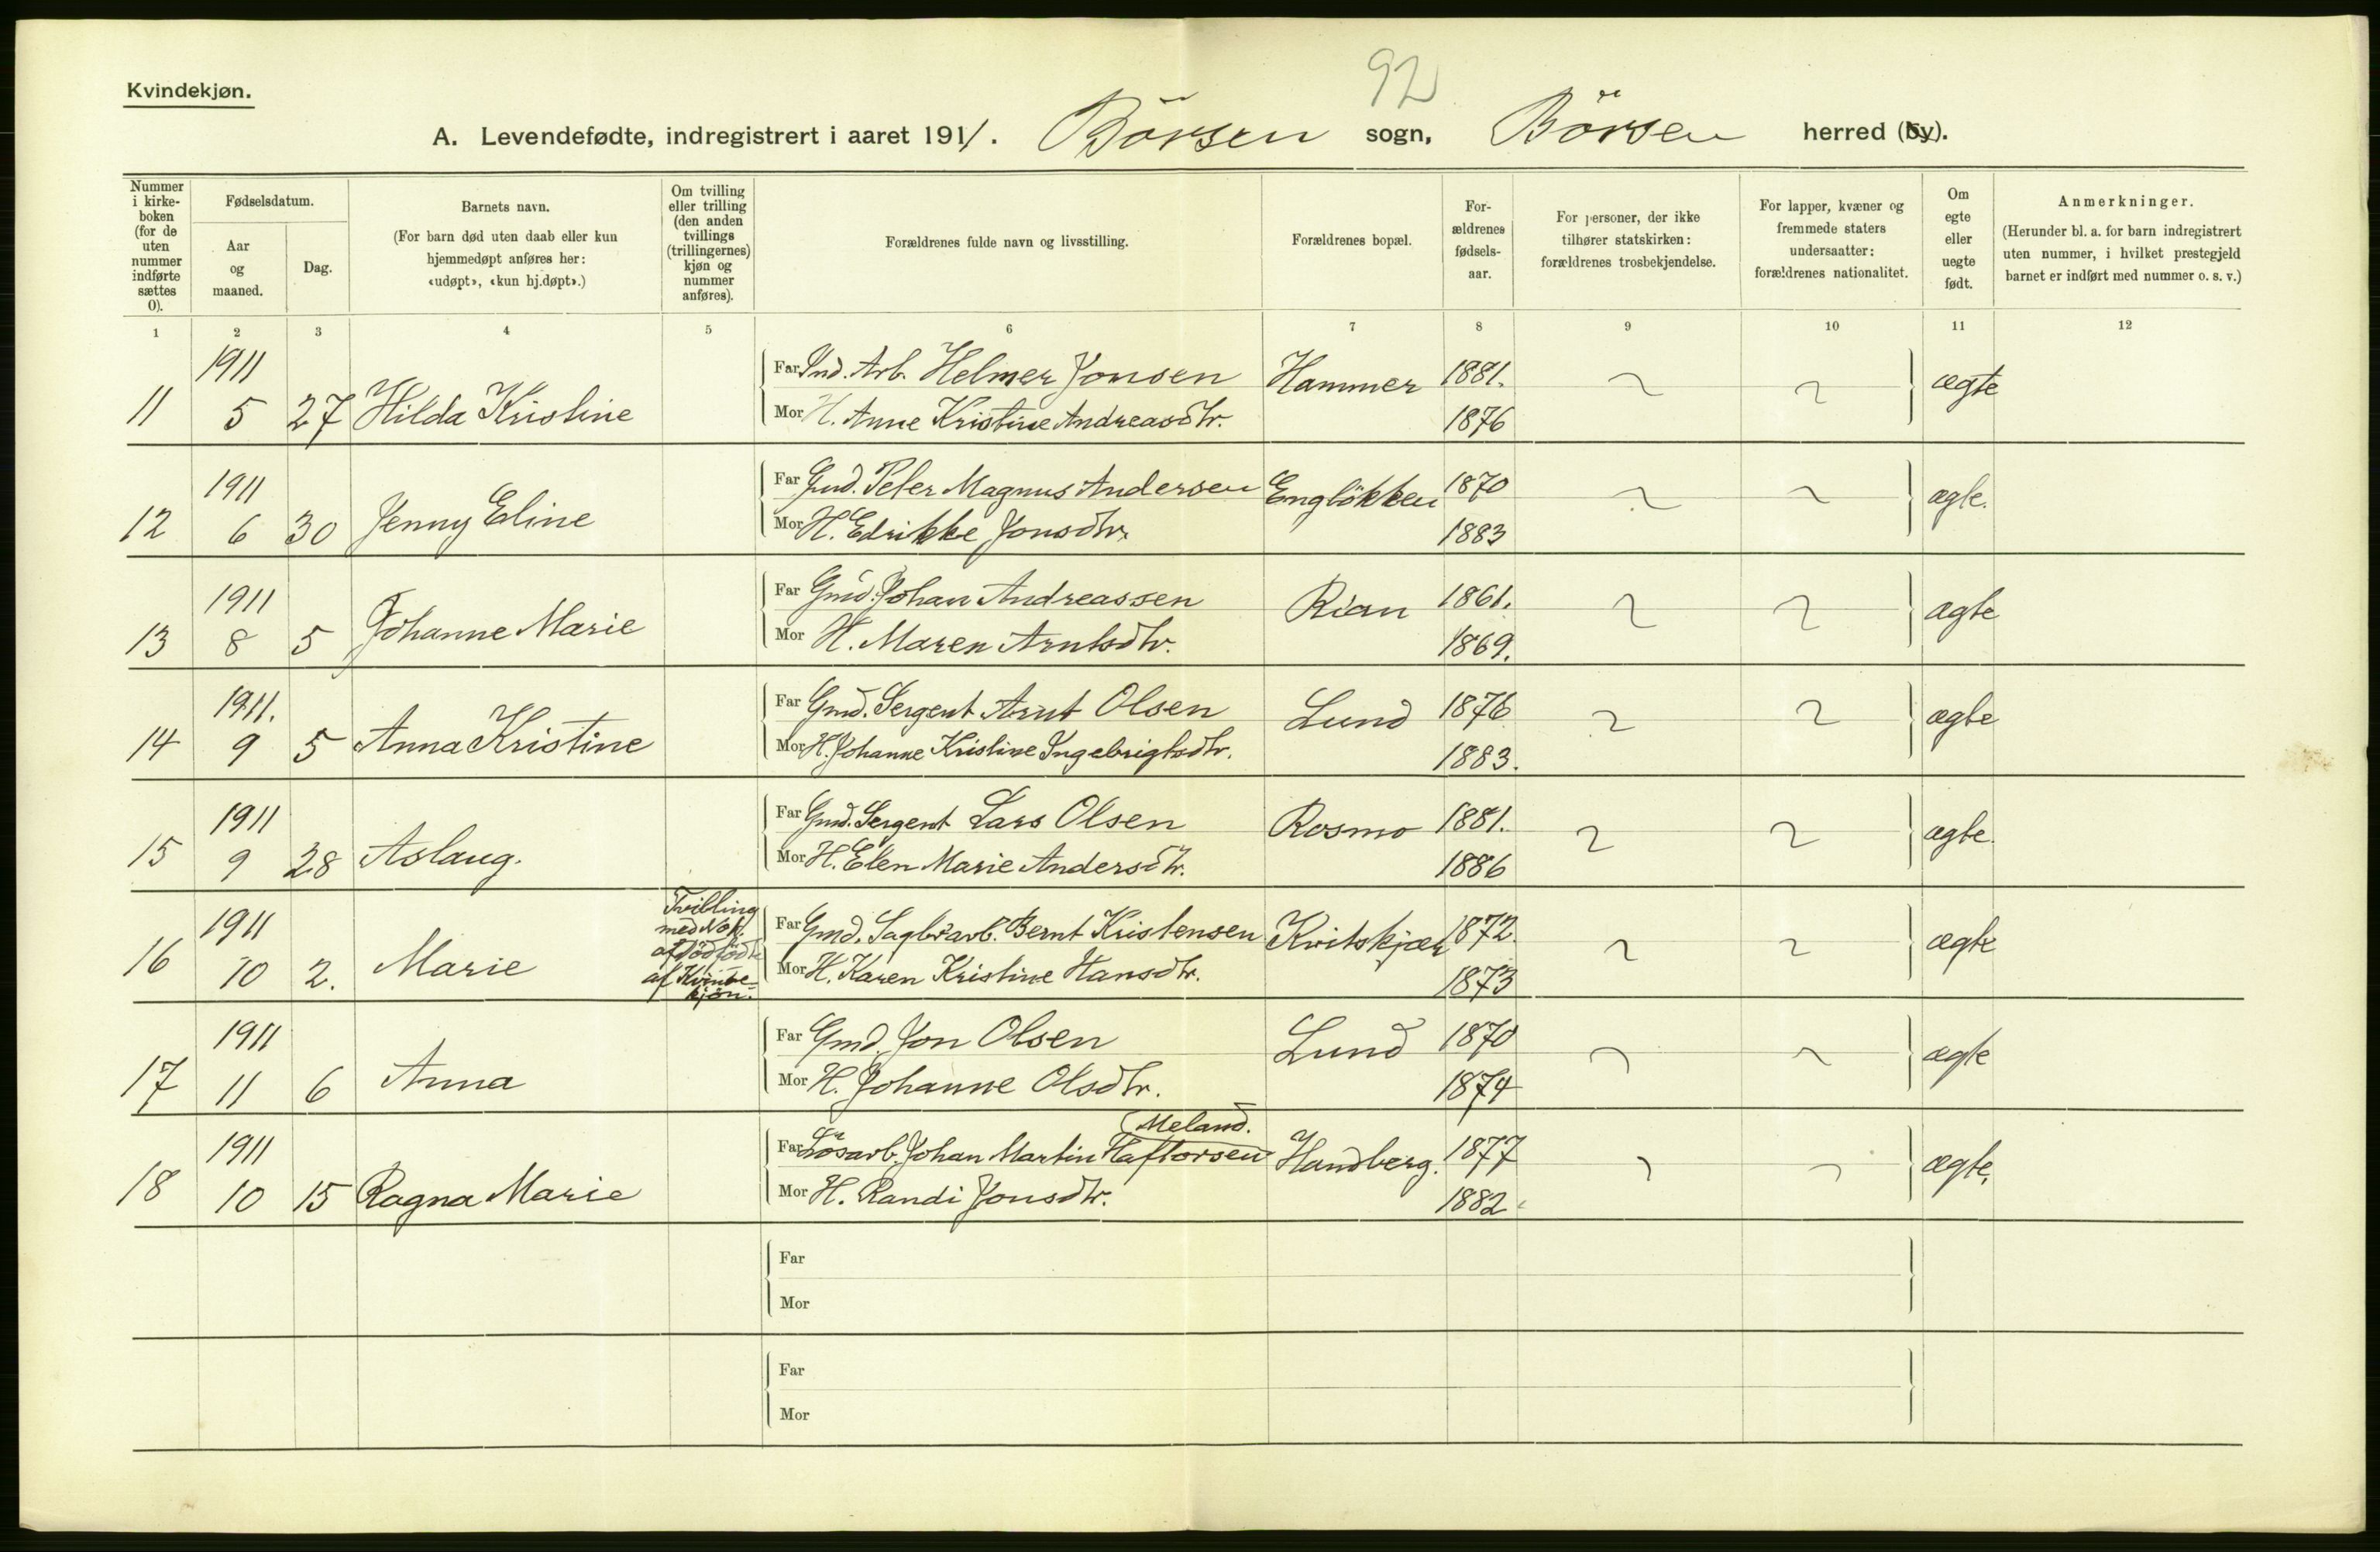 92
Kvindekjøn.
A. Levendefødte, indregistrert i aaret 1911. Börsen sogn, Börsen herred (by).
Nummer i kirke-boken (for de uten nummer indførte sættes 0).
Fødselsdatum.
Aar og maaned.
Dag.
Barnets navn.
(For barn død uten daab eller kun hjemmedøpt anføres her: «udøpt», «kun hj.døpt».)
Om tvilling eller trilling (den anden tvillings (trillingernes) kjøn og nummer anføres).
Forældrenes fulde navn og livsstilling.
Forældrenes bopæl.
For-ældrenes fødsels-aar.
For personer, der ikke tilhører statskirken: forældrenes trosbekjendelse.
For lapper, kvæner og fremmede staters undersaatter: forældrenes nationalitet.
Om egte eller uegte født.
Anmerkninger.
(Herunder bl. a. for barn indregistrert uten nummer, i hvilket prestegjeld barnet er indført med nummer o. s. v.)
1 2 3 4 5 6 7 8 9 10 11 12
1911 Far Ind. Arb. Helmer Jonsen Hammer 1881. ægte
11 5 27 Hilda Kristine Mor H. Anne Kristine Andreasdtr. 1876
1911 Far Gmd. Peter Magnus Andersen Englökken 1870 ægte.
12 6 30 Jenny Eline Mor H. Edrikke Jonsdtr. 1883
1911 Far Gmd. Johan Andreassen Rian 1861. ægte
13 8 5 Johanne Marie Mor H. Maren Arntsdtr. 1869.
1911. Far Gmd. Sergent Arnt Olsen Lund 1876 ægte
14 9 5 Anna Kristine Mor H. Johanne Kristine Ingebrigtsdtr. 1883.
1911 Far Gmd. Sergent Lars Olsen Rosmo 1881. ægte.
15 9 28 Aslaug. Mor H. Elen Marie Andersdtr. 1886
1911 Tvilling med No 1. af dödfödte af Kvinde-kjön. Far Gmd. Sagbr.arb. Bernt Kristensen Kvitskjær 1872. ægte
16 10 2. Marie Mor H. Karen Kristine Hansdtr. 1873
1911 Far Gmd. Jon Olsen Lund 1870 ægte
17 11 6 Anna Mor H. Johanne Olsdtr. 1874
(Meland.
1911 Far Lösarb. Johan Martin Haftorsen Handberg. 1877 ægte.
18 10 15 Ragna Marie Mor H. Randi Jonsdtr. 1882
Far
Mor
Far
Mor